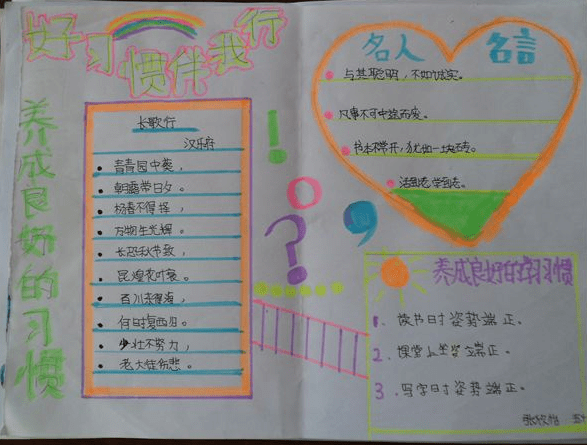 好习惯伴我行
养成良好的习惯
长歌行
汉乐府
青青园中葵，
朝露带日夕。
杨春不得择，
万物生光辉。
长恐秋节致，
昆煌衰叶衰。
百川来得海，
何日时复西归。
少壮不努力，
老大徒伤悲。
！
。
？
，
名人 名言
与其聪明，不如诚实。
凡事不可中途而废。
书本不常开，犹如一块砖。
活到老，学到老。
养成良好的学习惯
1. 读书时姿势端正。
2. 课堂上坐姿端正。
3. 写字时姿势端正。